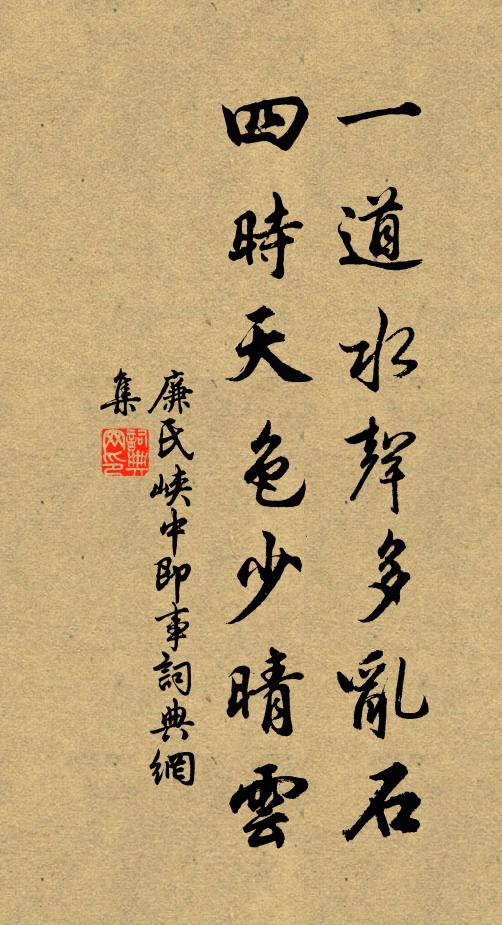 一道水聲多亂石
四時天色少晴雲
廉氏峽中即事詞典網
集
詞典
网印